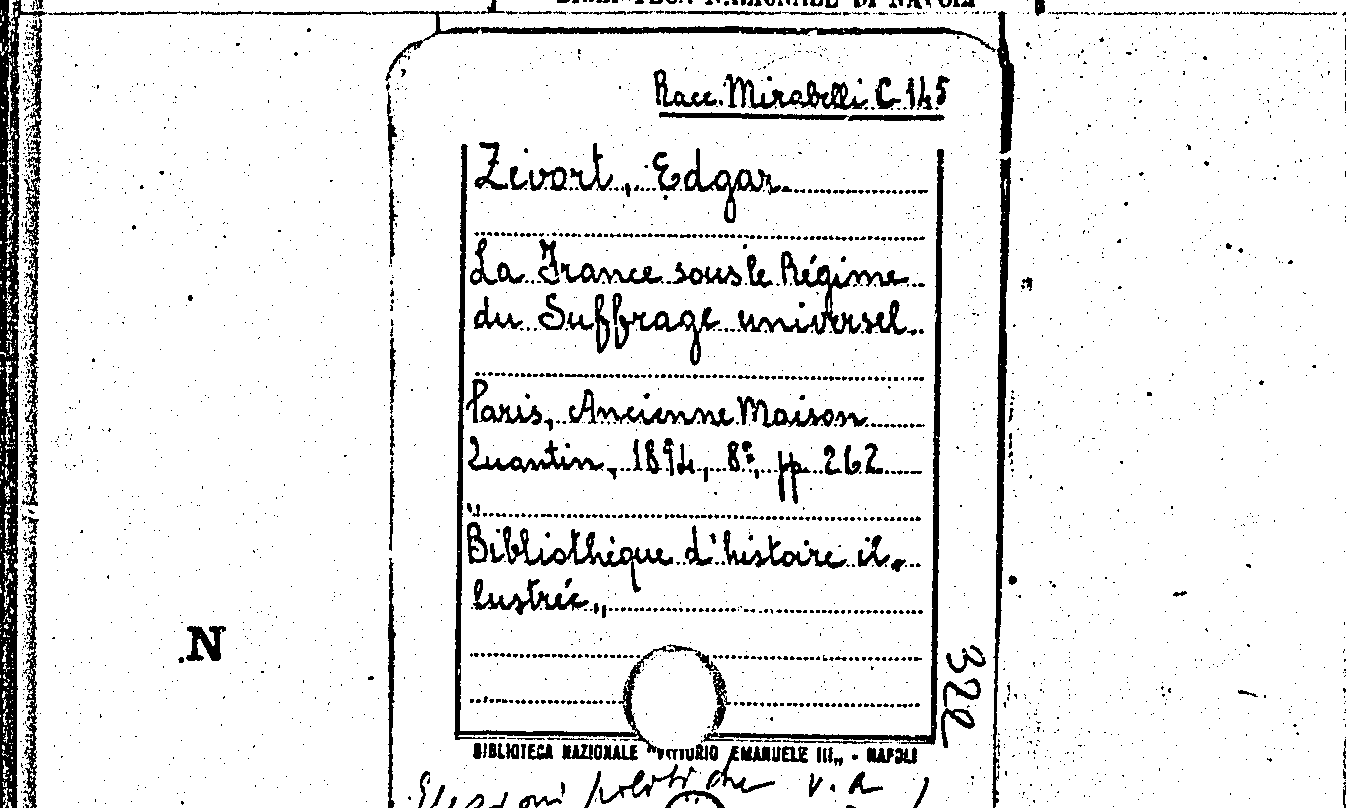 BIBLIOTECA NAZIONALE DI NAPOLI
Racc. Mirabelli C 145
Zevort, Edgar
La France sous le Régime
du Suffrage universel
Paris, Ancienne Maison
Quantin, 1894, 8º, pp 262
"
Bibliothèque d'histoire il-
lustrée„
N
322
BIBLIOTECA NAZIONALE "VITTORIO EMANUELE III„ - NAPOLI
Elezioni politiche v. a